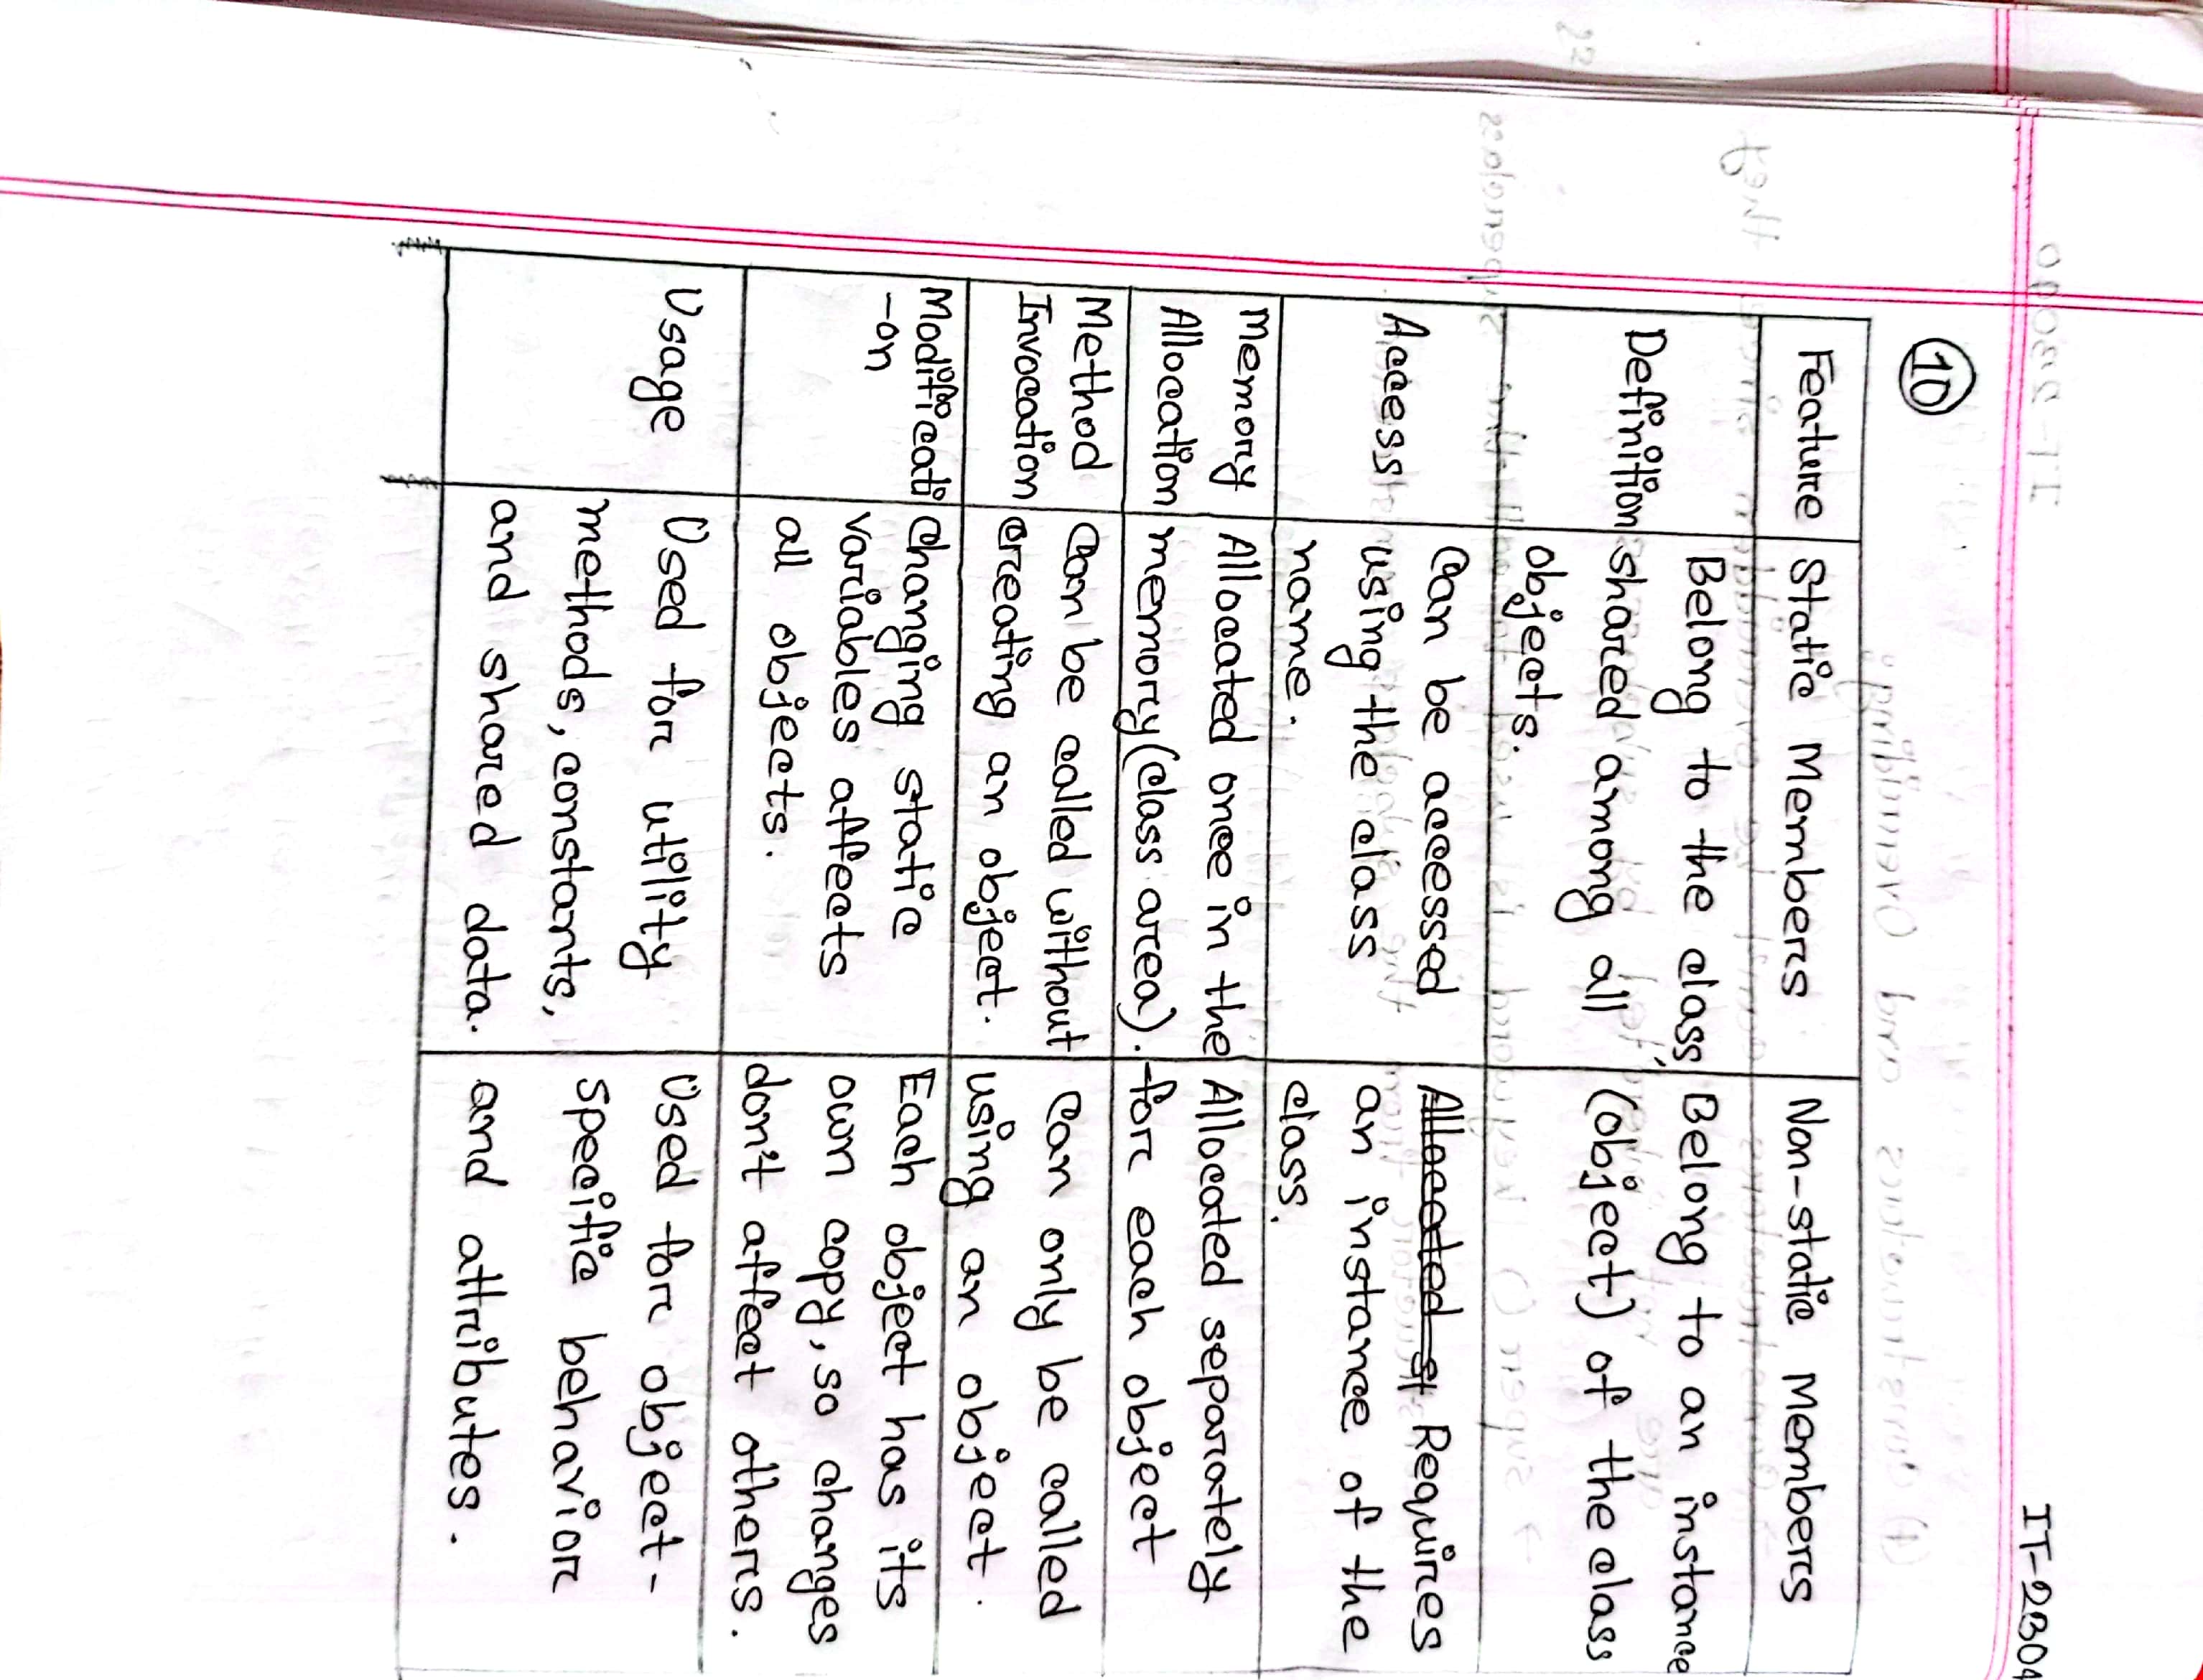 IT-2304
10
Feature
Static Members
Non-static Members
Definition
Belong to the class,
shared among all
objects.
Belong to an instance
(object) of the class
Access
Can be accessed
using the class
name.
Allocated s Requires
an instance of the
class.
Memory
Allocation
Allocated once in the
memory (class area).
Allocated separately
for each object
Method
Invocation
Can be called without
creating an object.
Can only be called
using an object.
Modificati
-on
Changing static
variables affects
all objects.
Each object has its
own copy, so changes
don't affect others.
Usage
Used for utility
methods, constants,
and shared data.
Used for object-
specific behavior
and attributes.